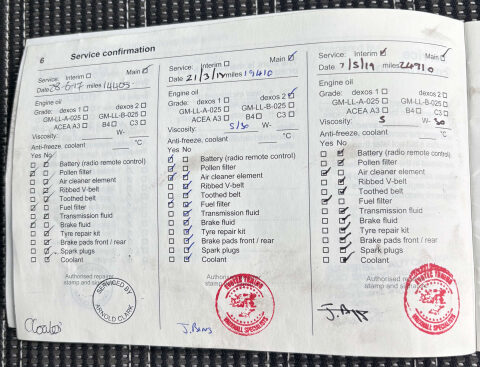 6
Service confirmation
Service: Interim ☐ Main ☑
Date 28-6-17 miles 14405
Engine oil
Grade: dexos 1 ☐ dexos 2 ☐
GM-LL-A-025 ☐ GM-LL-B-025 ☐
ACEA A3 ☐ B4 ☐ C3 ☐
Viscosity: W-
Anti-freeze, coolant °C
Yes No
Battery (radio remote control)
Pollen filter
Air cleaner element
Ribbed V-belt
Toothed belt
Fuel filter
Transmission fluid
Brake fluid
Tyre repair kit
Brake pads front / rear
Spark plugs
Coolant
Authorised repairer
stamp and
SERVICED BY
ARNOLD CLARK
Service: Interim ☐ Main ☑
Date 21/3/18 miles 19410
Engine oil
Grade: dexos 1 ☐ dexos 2 ☑
GM-LL-A-025 ☐ GM-LL-B-025 ☐
ACEA A3 ☐ B4 ☐ C3 ☐
Viscosity: 5/30 W-
Anti-freeze, coolant °C
Yes No
Battery (radio remote control)
Pollen filter
Air cleaner element
Ribbed V-belt
Toothed belt
Fuel filter
Transmission fluid
Brake fluid
Tyre repair kit
Brake pads front / rear
Spark plugs
Coolant
Authorised repairer
stamp and
VAUXHALL SPECIALISTS
Service: Interim ☑ Main ☑
Date 7/5/19 miles 24910
Engine oil
Grade: dexos 1 ☐ dexos 2 ☐
GM-LL-A-025 ☐ GM-LL-B-025 ☐
ACEA A3 ☐ B4 ☐ C3 ☐
Viscosity: 5 W- 30
Anti-freeze, coolant °C
Yes No
Battery (radio remote control)
Pollen filter
Air cleaner element
Ribbed V-belt
Toothed belt
Fuel filter
Transmission fluid
Brake fluid
Tyre repair kit
Brake pads front / rear
Spark plugs
Coolant
Authorised
stamp and
VAUXHALL SPECIALISTS